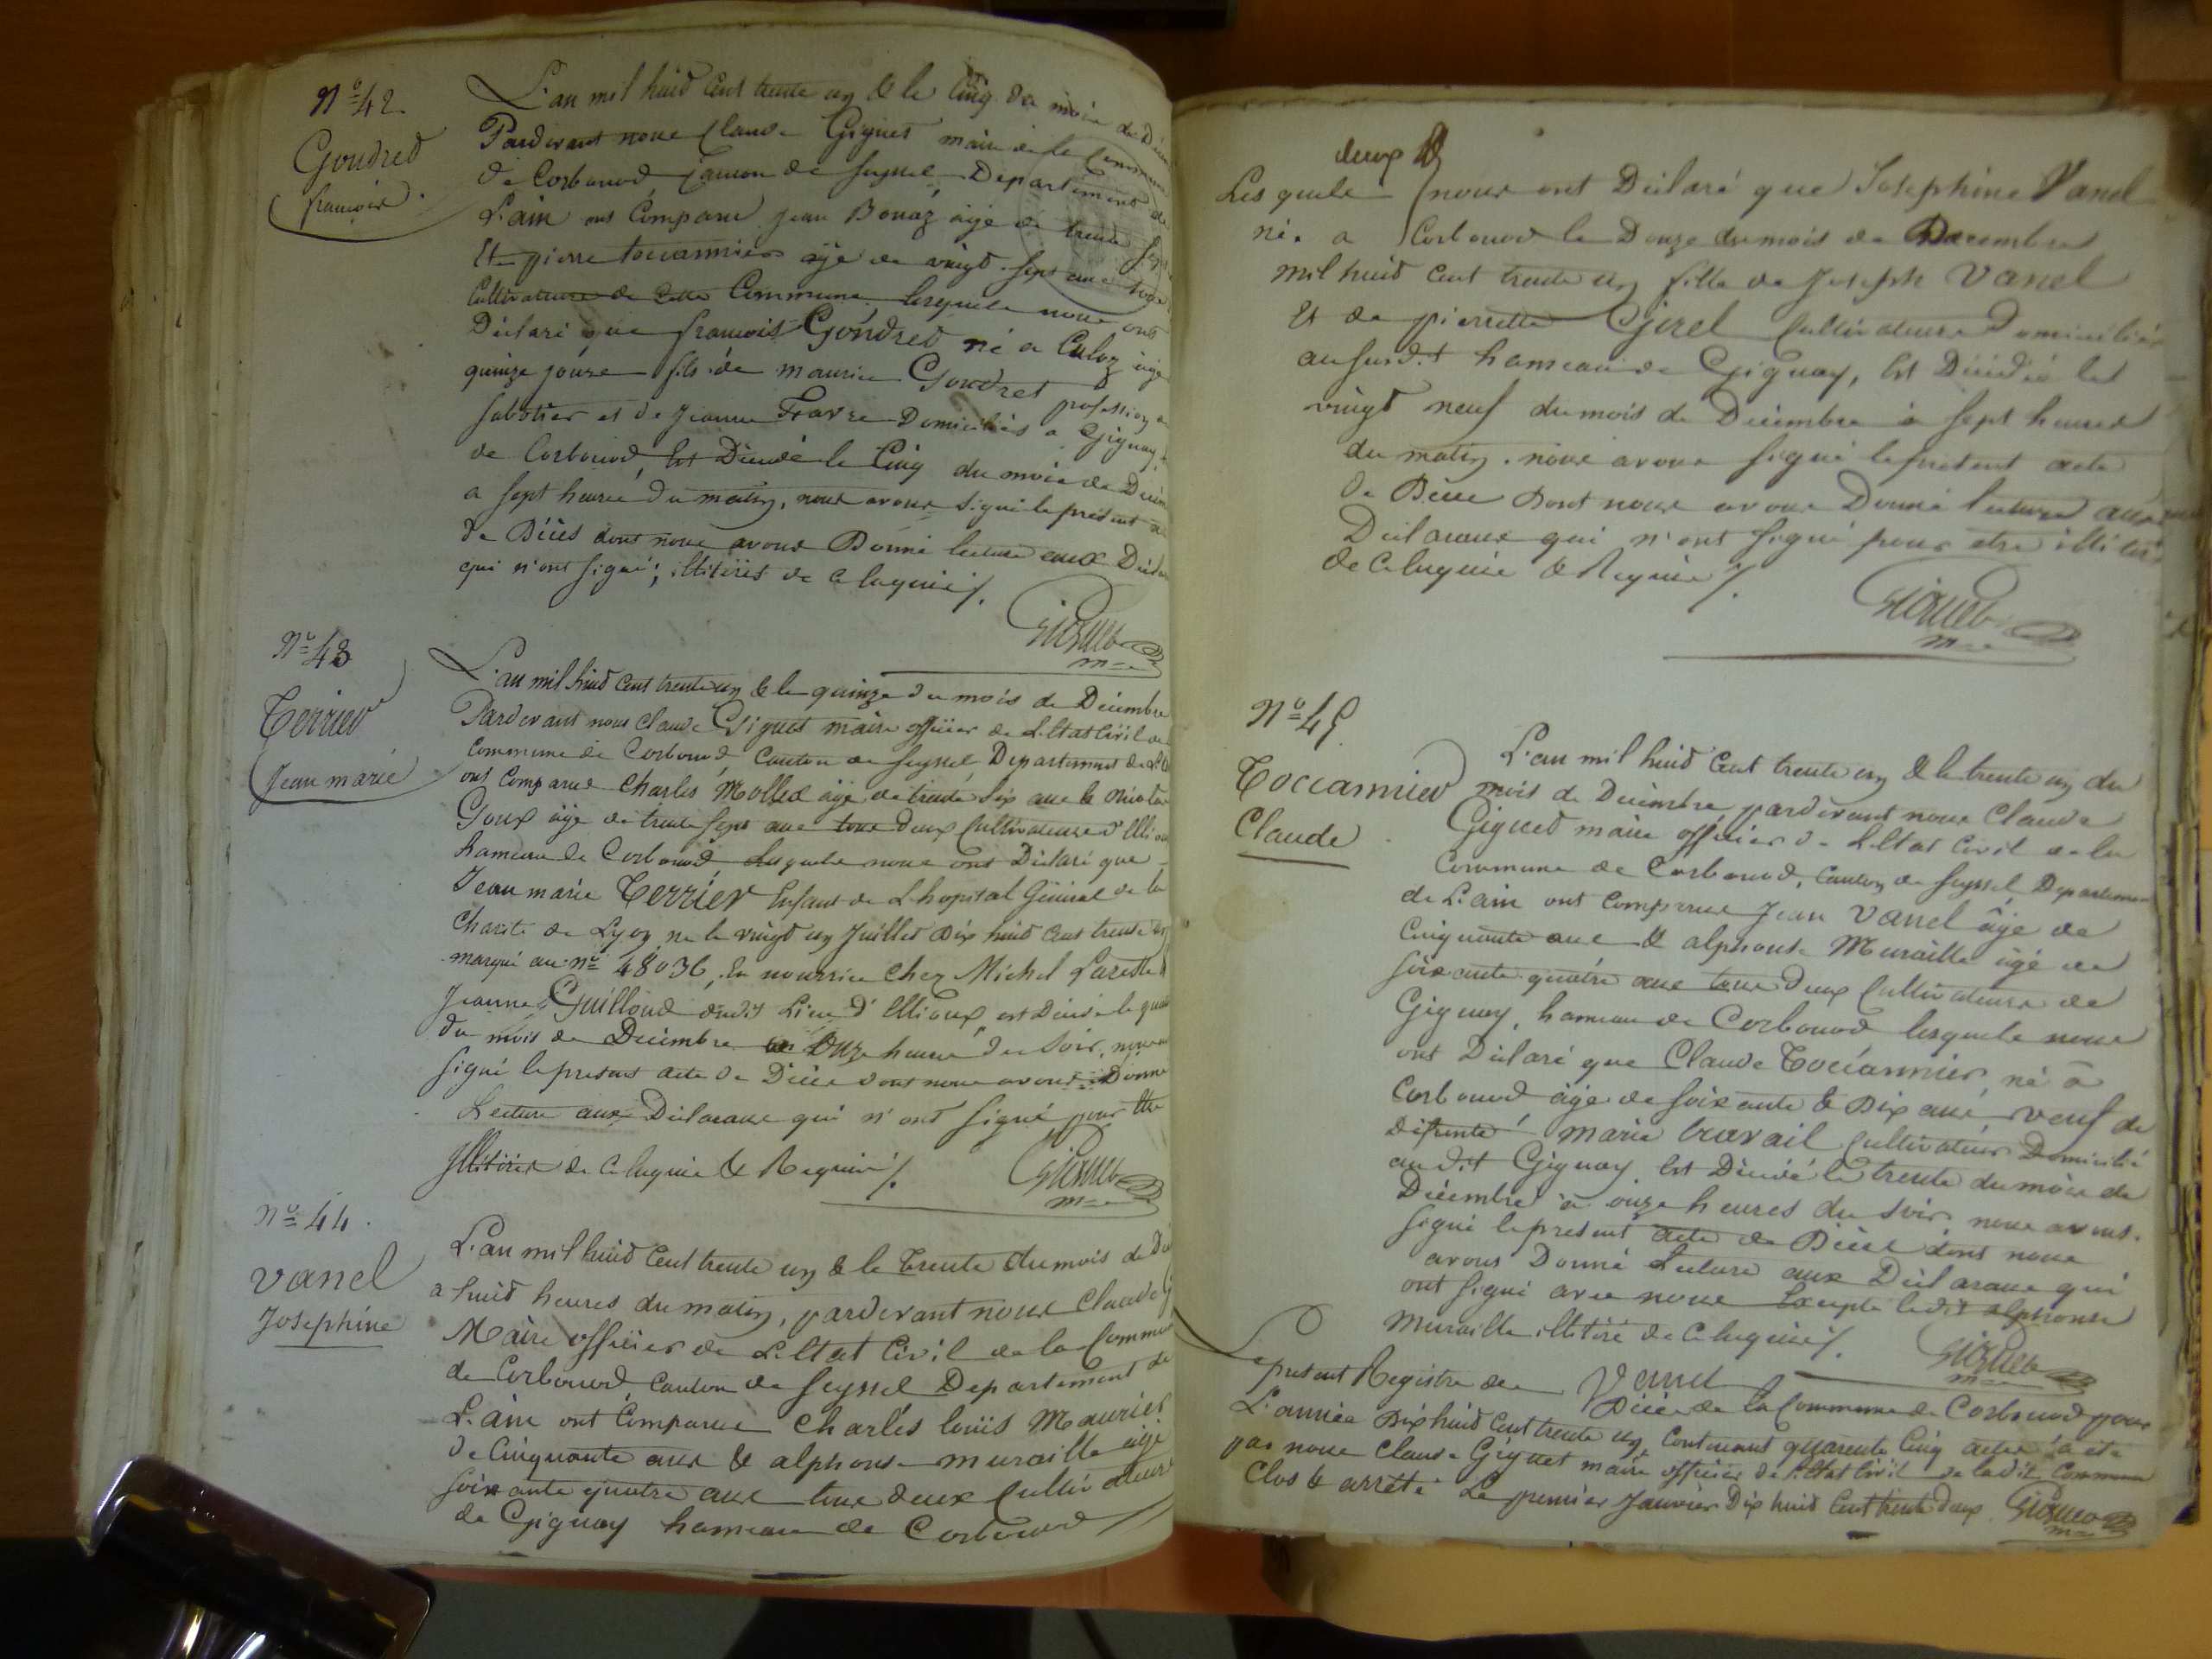 N° 42
Goudred
francois.
L'an mil huid Cent trente un & le Cinq du mois de Décem
Pardevant nous Claude Giguet maire de la Commune
de Corbonod Canton de Seyssel Departement de
L'ain ont Comparu jean Bonaz âgé de trente sept
Et pierre toccannier âgé de vingt-sept ans tous
Cultivateurs de cette Commune lesquels nous ont
Déclaré que francois Goudred né a Culoz âgé
quinze jours fils de maurice Goudret profession de
Sabotier et de jeanne Domiciliés a Gignay
de Corbonod Est Décédé le Cinq du mois de Décem
a sept heures du matin, nous avons signé le présent
de Décès dont nous avons Donné lecture aux Décla
qui n'ont signé; illitirés de Ce luquis /.
Giguet
m=e
N° 43
Terrier
Jean marie
L'an mil huid Cent trente un & le quinze du mois de Décembre
Pardevant nous Claude Giguet maire officier de L'Etat Civil de
Commune de Corbonod Canton de Seyssel Departement de L'
ont Comparus Charles Mollex âgé de trente six ans &
Goux âgé de trente sept ans tous deux Cultivateurs d'Ellioux
hameau de Corbonod, Lesquels nous ont Déclaré que
Jean marie Terrier Enfant de L'hopital Géneral de la
Charité de Lyon né le vingt un Juillet dix huid Cent trente un
marqué au n° 48036, En nourrice Chez Michel
Jeanne Guilloud dudit Lieu d'Ellioux, est Décédé le
du mois de Décembre a onze heures du Soir, nous
signé le present acte de Décès dont nous avons Donné
Lecture aux Déclarans qui n'ont signé pour Etre
Illitirés de Ce luquis & Requis /.
Giguet
m=e
N° 44.
Vanel
Josephine
L'an mil huid Cent trente un & le trente du mois de Dé
a huid heures du matin, pardevant nous Claude G
Maire officier de L'Etat Civil de la Commune
de Corbonod Canton de Seyssel Departement de
L'ain ont Comparus Charles louis Maurier
de Cinquante ans & alphonse muraille âgé
soixante quatre ans tous deux Cultivateurs
de Gignay hameau de Corbonod
deux
Lesquels nous ont Déclaré que Josephine Vanel
née a Corbonod le Douze du mois de Decembre
mil huid Cent trente un fille de Joseph Vanel
Et de pierrette Girel Cultivateurs Domiciliés
au susdit hameau de Gignay, Est Décédée le
vingt neuf du mois de Décembre à sept heures
du matin. nous avons signé le présent acte
de Décès Dont nous avons Donné lecture aux
Déclarans qui n'ont signé pour etre illitirés
de Ce luquis & Requis /.
Giguet
m=e
N° 45.
Toccannier
Claude
L'an mil huid Cent trente un & le trente un du
mois de Decembre pardevant nous Claude
Giguet maire officier de L'Etat Civil de la
Commune de Corbonod, Canton de Seyssel Departement
de L'ain ont Comparus Jean Vanel âgé de
Cinquante ans & alphonse Muraille âgé de
soixante quatre ans tous Deux Cultivateurs de
Gignay, hameau de Corbonod lesquels nous
ont Déclaré que Claude Toccannier, né à
Corbonod âgé de soixante & Dix ans, veuf de
Défunte marie travail Cultivateur Domicilié
audit Gignay Est Décédé le trente du mois de
Décembre à onze heures du soir, nous avons
signé le present acte de Décès dont nous
avons Donné Lecture aux Déclarans qui
ont signé avec nous Excepté ledit alphonse
Muraille illitiré de Ce luquis /.
Giguet
m=e
Vanel
Le present Registre des Décès de la Commune de Corbonod pour
L'année Dix huid Cent trente un, Contenant quarente Cinq actes a été
par nous Claude Giguet maire officier de L'Etat Civil de ladite Commune
Clos & arrêté Le premier Janvier Dix huid Cent trente deux. Giguet
m=e